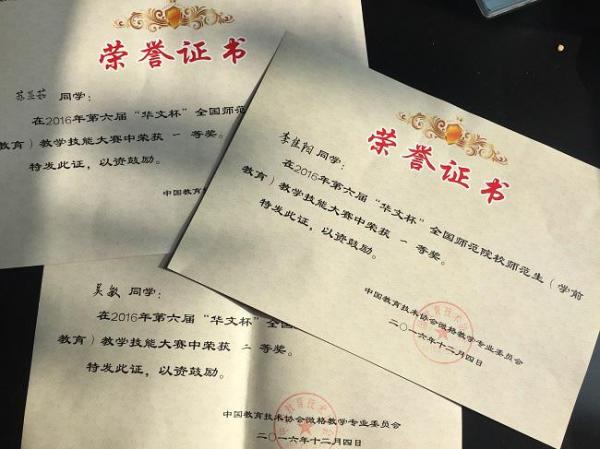 荣誉证书
同学：
在2016年第六届“华文杯”全国师范
教育）教学技能大赛中荣获 一 等奖。
特发此证，以资鼓励。
中国教育
荣誉证书
李佳阳 同学：
在2016年第六届“华文杯”全国师范院校师范生（学前
教育）教学技能大赛中荣获 一 等奖。
特发此证，以资鼓励。
中国教育技术协会微格教学专业委员会
二〇一六年十二月四日
吴敏 同学：
在2016年第六届“华文杯”全国
教育）教学技能大赛中荣获 二 等奖。
特发此证，以资鼓励。
中国教育技术协会微格教学专业委员会
二〇一六年十二月四日